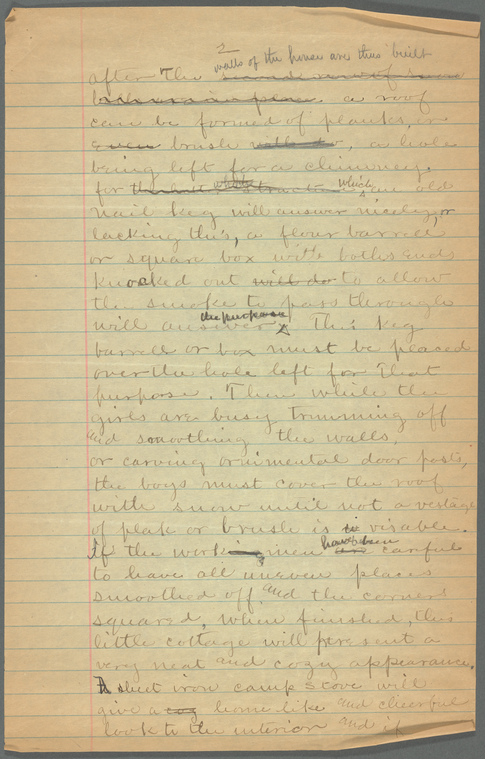 2
walls of the house are thus built
after the
a roof
can be formed of planks, or
even brush, a hole
being left for a chimney.
for which an old
nail keg will answer nicely, or
lacking this, a flour barrell
or square box with boths ends
knocked out will do to allow
the smoke to pass through
the purpose
will answer ^ This keg
barrell or box must be placed
over the hole left for that
purpose. Then while the
girls are busy trimming off
and smoothing the walls,
or carving ornimental door posts,
the boys must cover the roof
with snow until not a vestage
of plank or brush is visable.
have been
If the workingmen are careful
to have all uneven places
smoothed off and the corners
squared, when finished, this
little cottage will present a
very neat and cozy appearance.
A sheet iron camp stove will
give a cozy home like and cheerful
look to the interior and if